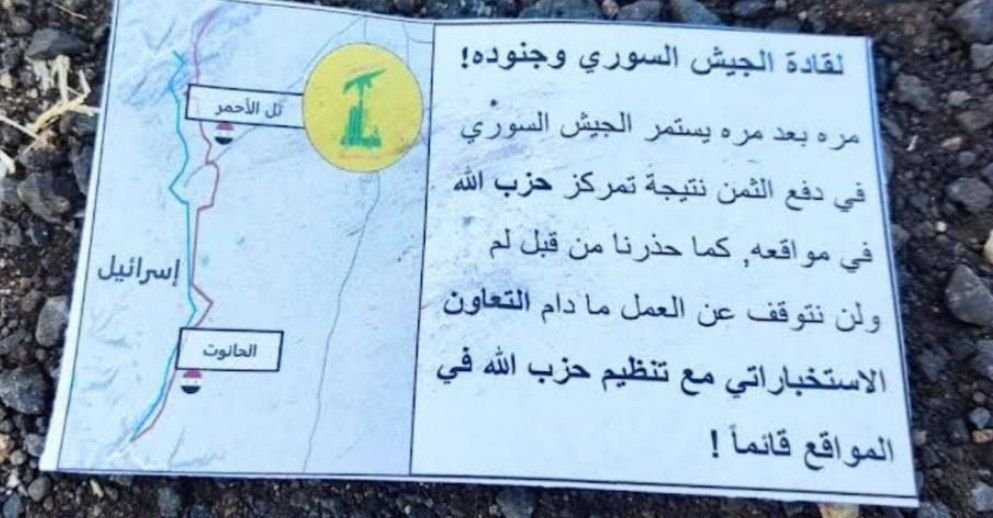 لقادة الجيش السوري وجنوده!
مره بعد مره يستمر الجيش السوري
في دفع الثمن نتيجة تمركز حزب الله
في مواقعه, كما حذرنا من قبل لم
ولن نتوقف عن العمل ما دام التعاون
الاستخباراتي مع تنظيم حزب الله في
المواقع قائماً !
تل الأحمر
إسرائيل
الحانوت